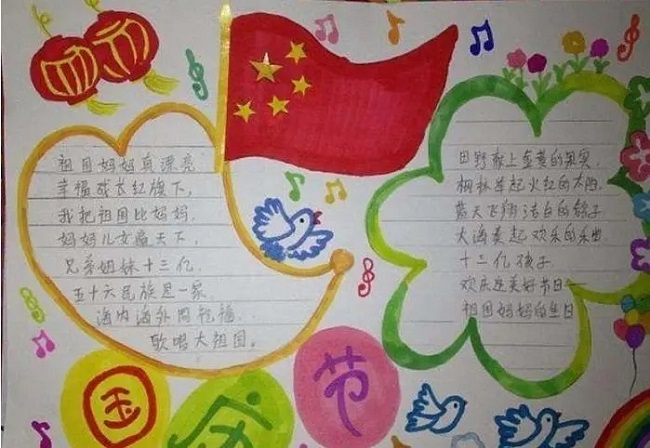 祖国妈妈真漂亮
幸福成长红旗下,
我把祖国比妈妈,
妈妈儿女遍天下,
兄弟姐妹十三亿
五十六民族是一家,
海内海外同祝福
歌唱大祖国。
田野献上金黄的果实,
枫林举起火红的太阳,
蓝天飞翔洁白的鸽子
大海奏起欢乐的乐曲
十三亿孩子
欢庆这美好节日
祖国妈妈的生日
国庆节